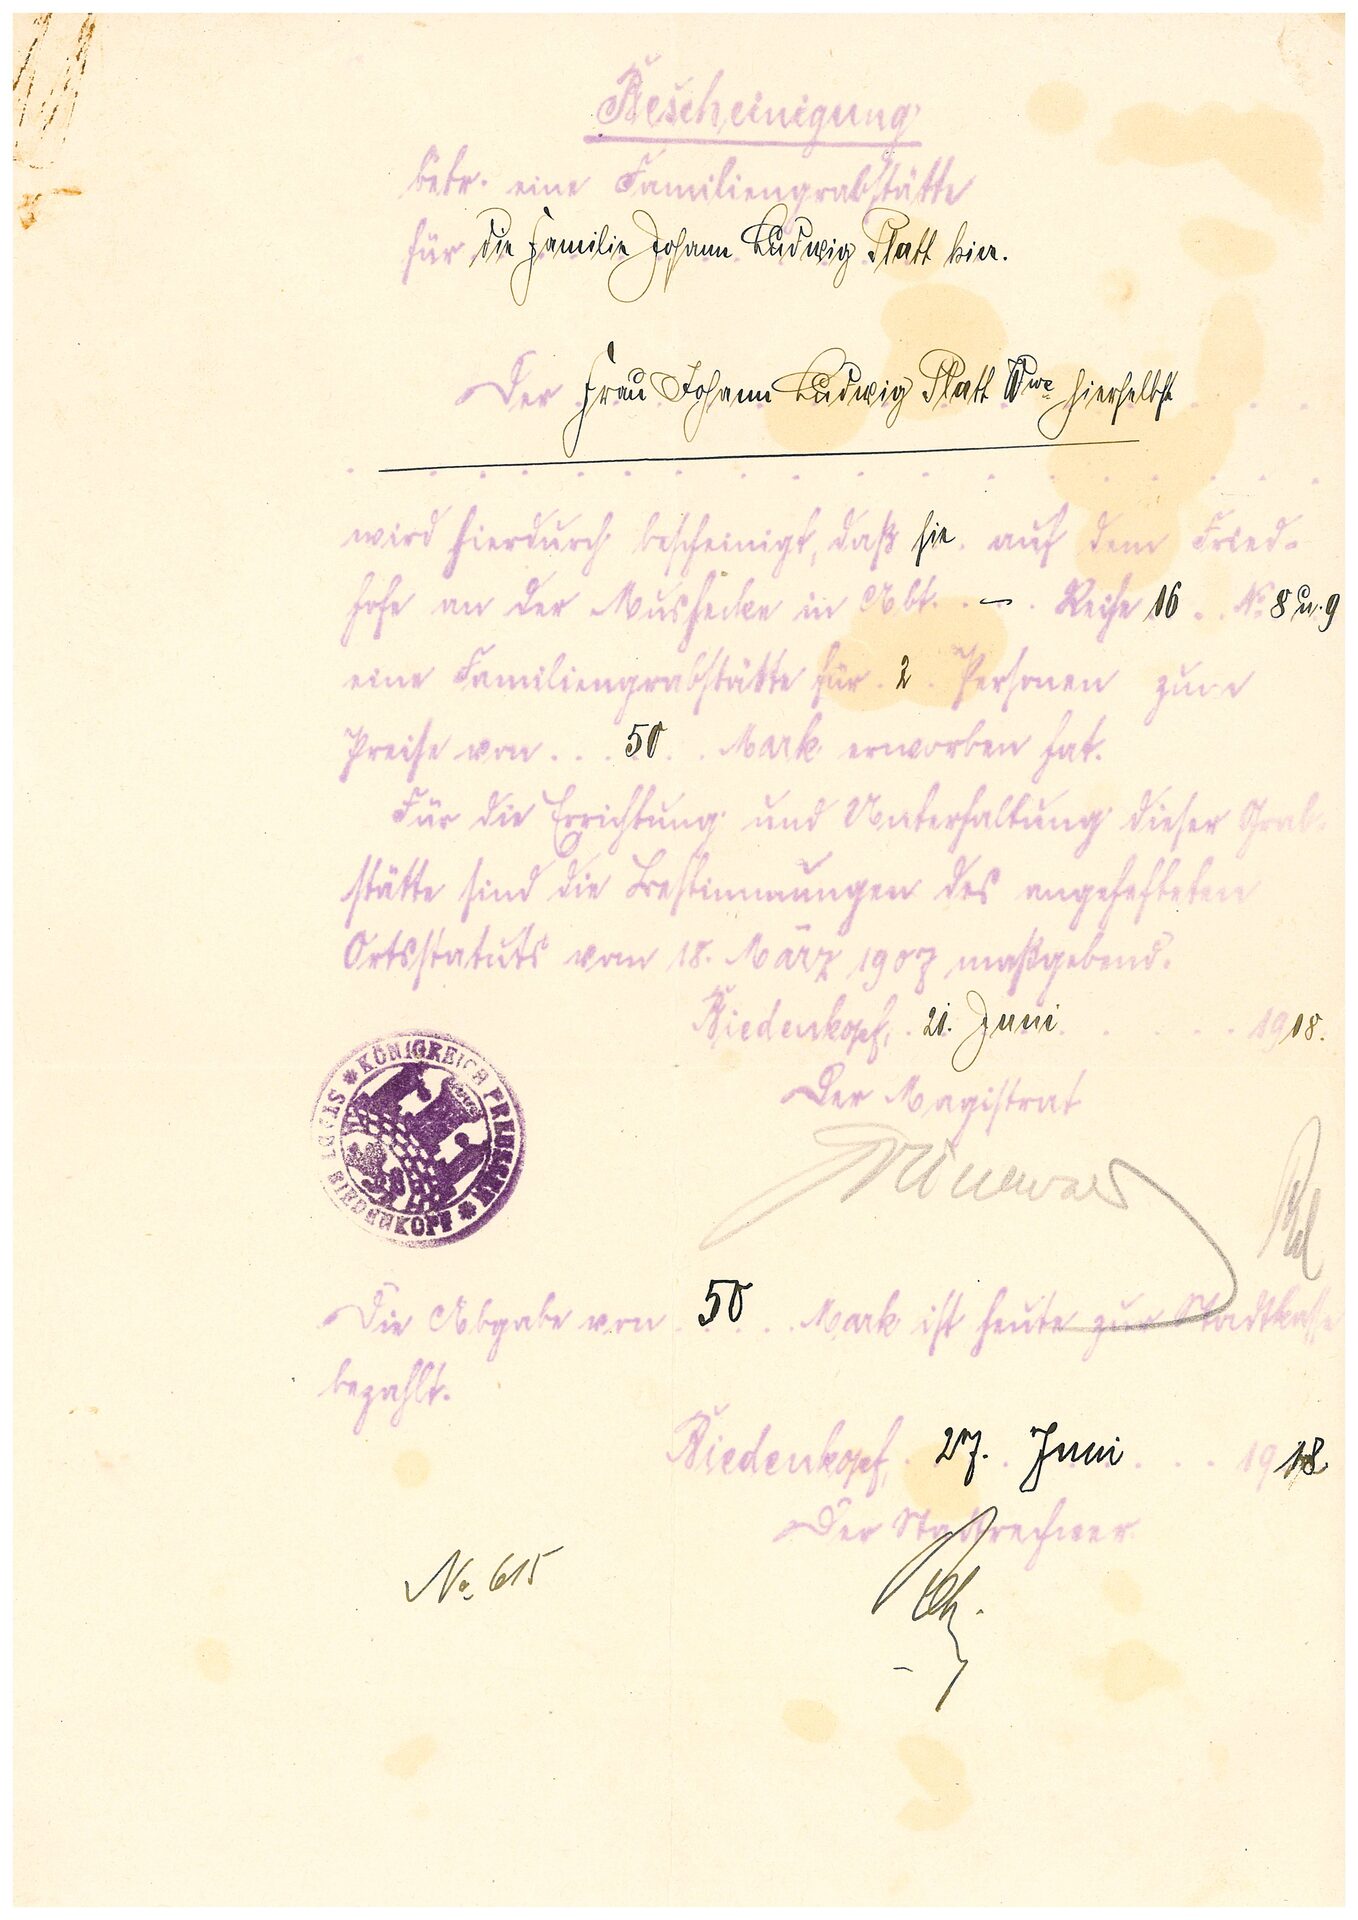 Bescheinigung
betr. eine Familiengrabstätte
für die Familie Johann Ludwig Platt hier.
Der Frau Johann Ludwig Platt Wwe hierselbst
wird hierdurch bescheinigt, daß sie auf dem Fried-
hofe an der Mushecke in Abt. – Reihe 16 No 8 u. 9
eine Familiengrabstätte für 2 Personen zum
Preise von 50 Mark erworben hat.
Für die Errichtung und Unterhaltung dieser Grab-
stätte sind die Bestimmungen des angehefteten
Ortsstatuts vom 18. März 1907 maßgebend.
Biedenkopf, 21. Juni 1918.
Der Magistrat
KÖNIGREICH PREUSSEN
BIEDENKOPF
Die Abgabe von 50 Mark ist heute zur Stadtkasse
bezahlt.
Biedenkopf, 27. Juni 1918.
Der Stadtrechner
No. 615